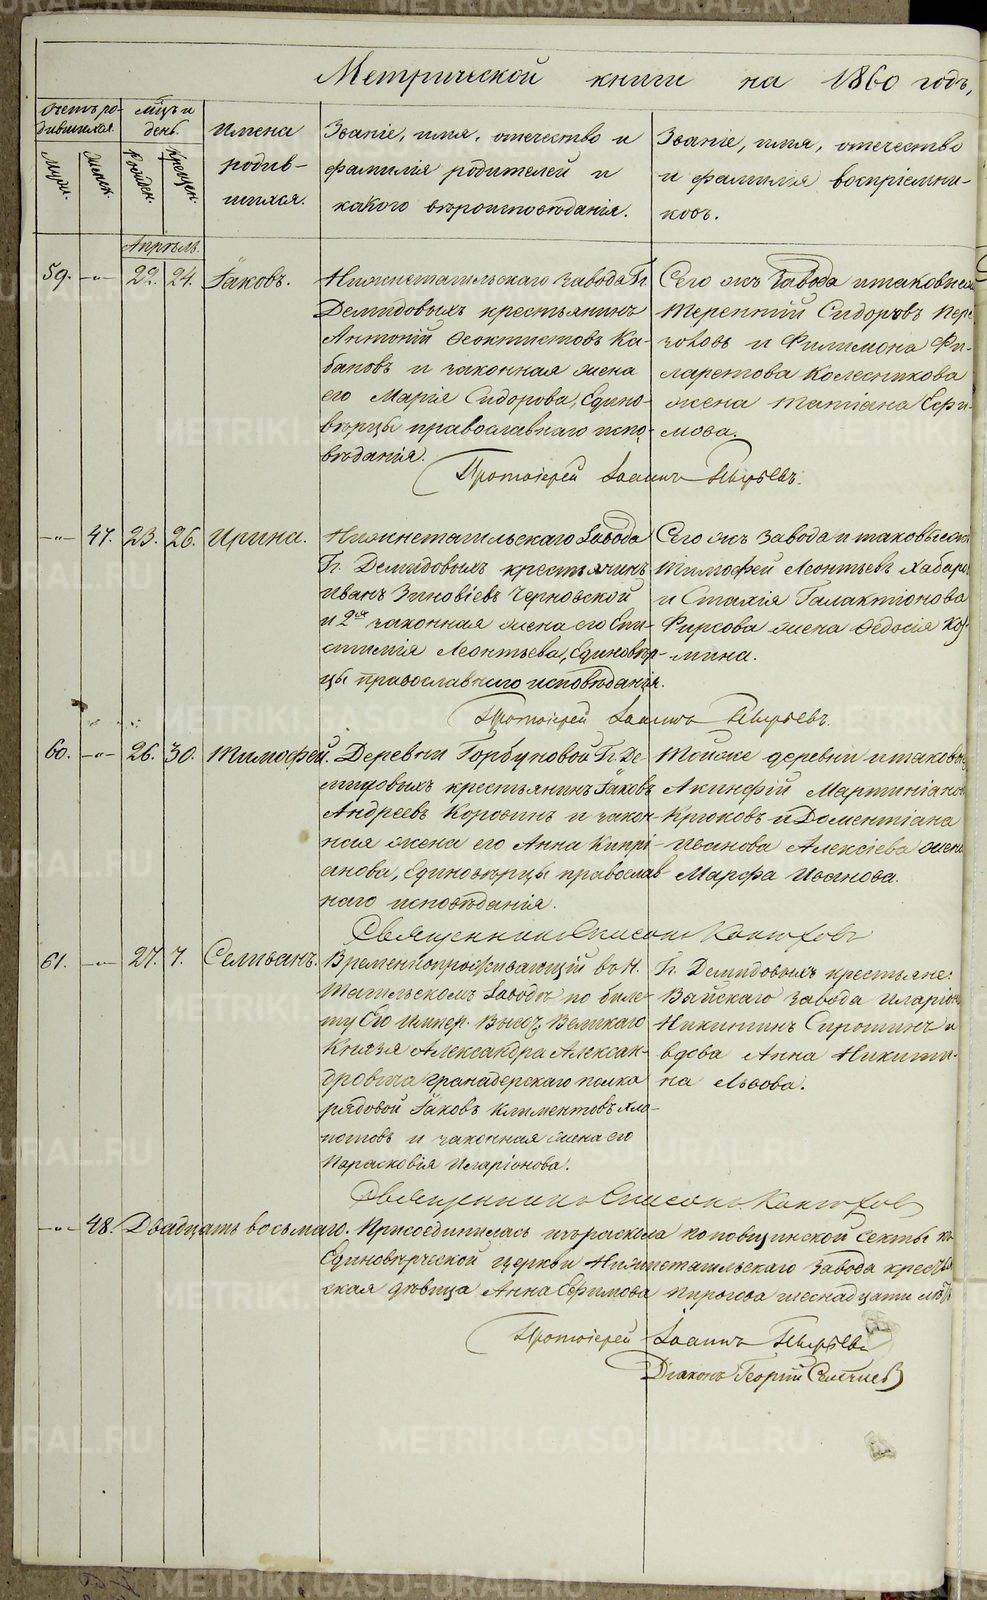 Метрической книги на 1860 годъ,
Счетъ ро-
дившихся.
Мужи.
Женск.
мѣсц и
день.
Рожден.
Крещен.
Имена
родив-
шихся.
Званіе, имя, отчество и
фамилія родителей и
какого вѣроисповѣданія.
Званіе, имя, отчество
и фамилія воспріемни-
ковъ.
Апрѣль.
59. -"- 22. 24. Іаковъ.
Нижнетагильскаго завода Гг.
Демидовыхъ крестьянинъ
Антоній Ѳеоктистовъ Ка-
бановъ и законная жена
его Марія Сидорова, Едино-
вѣрцы православнаго испо-
вѣданія.
Сего жъ Завода и таковые ж
Терентій Сидоровъ
и Филимона Фи-
ларетова Колесникова
жена Татіана Ефи-
мова.
Протоіерей Іоаннъ Пырьевъ.
-"- 47. 23. 26. Ирина.
Нижнетагильскаго Завода
Гг. Демидовыхъ крестьянинъ
Иванъ Зиновіевъ Черновской
и 2я законная жена его Епи-
стимія Леонтьева, Единовѣр-
цы православнаго исповѣданія.
Сего жъ Завода и таковые ж
Тимофей Леонтьевъ
и Галактіонова
Фирсова жена Ѳедосія Коз-
мина.
Протоіерей Іоаннъ Пырьевъ.
60. -"- 26. 30. Тимофей.
Деревни Горбуновой Гг. Де
мидовыхъ крестьянинъ Іаковъ
Андреевъ Коровинъ и закон
ная жена его Анна Кипрі-
анова, Единовѣрцы православ
наго исповѣданія.
Тойже деревни и таковые
Акинфій Мартиніановъ
Крюковъ и Доментіана
Иванова Алексіева жена
Марфа Иванова.
Священникъ Симеонъ Конюхов
61. -"- 27. 7. Селиванъ.
Временнопроживающій въ Н.
Тагильскомъ Заводѣ по биле-
ту Его Импер. Высоч. Великаго
Князя Александра Алексан-
дровича гранадерскаго полка
рядовой Іаковъ Климентовъ Хло-
потовъ и законная жена его
Парасковія Иларіонова.
Гг. Демидовыхъ крестьяне:
Выйскаго завода Иларіонъ
Никитинъ Сиротинъ и
вдова Анна Никити-
на Львова.
Священникъ Симеонъ Конюхов
-"- 48. Двадцать восьмаго. Присоединилась изъ раскола поповщинской секты къ
Единовѣрческой церкви Нижнетагильскаго завода крестьян
ская дѣвица Анна Ефимова Пирогова шестнадцати лѣтъ
Протоіерей Іоаннъ Пырьевъ
Діаконъ Георгій
METRIKI.GASO-URAL.RU